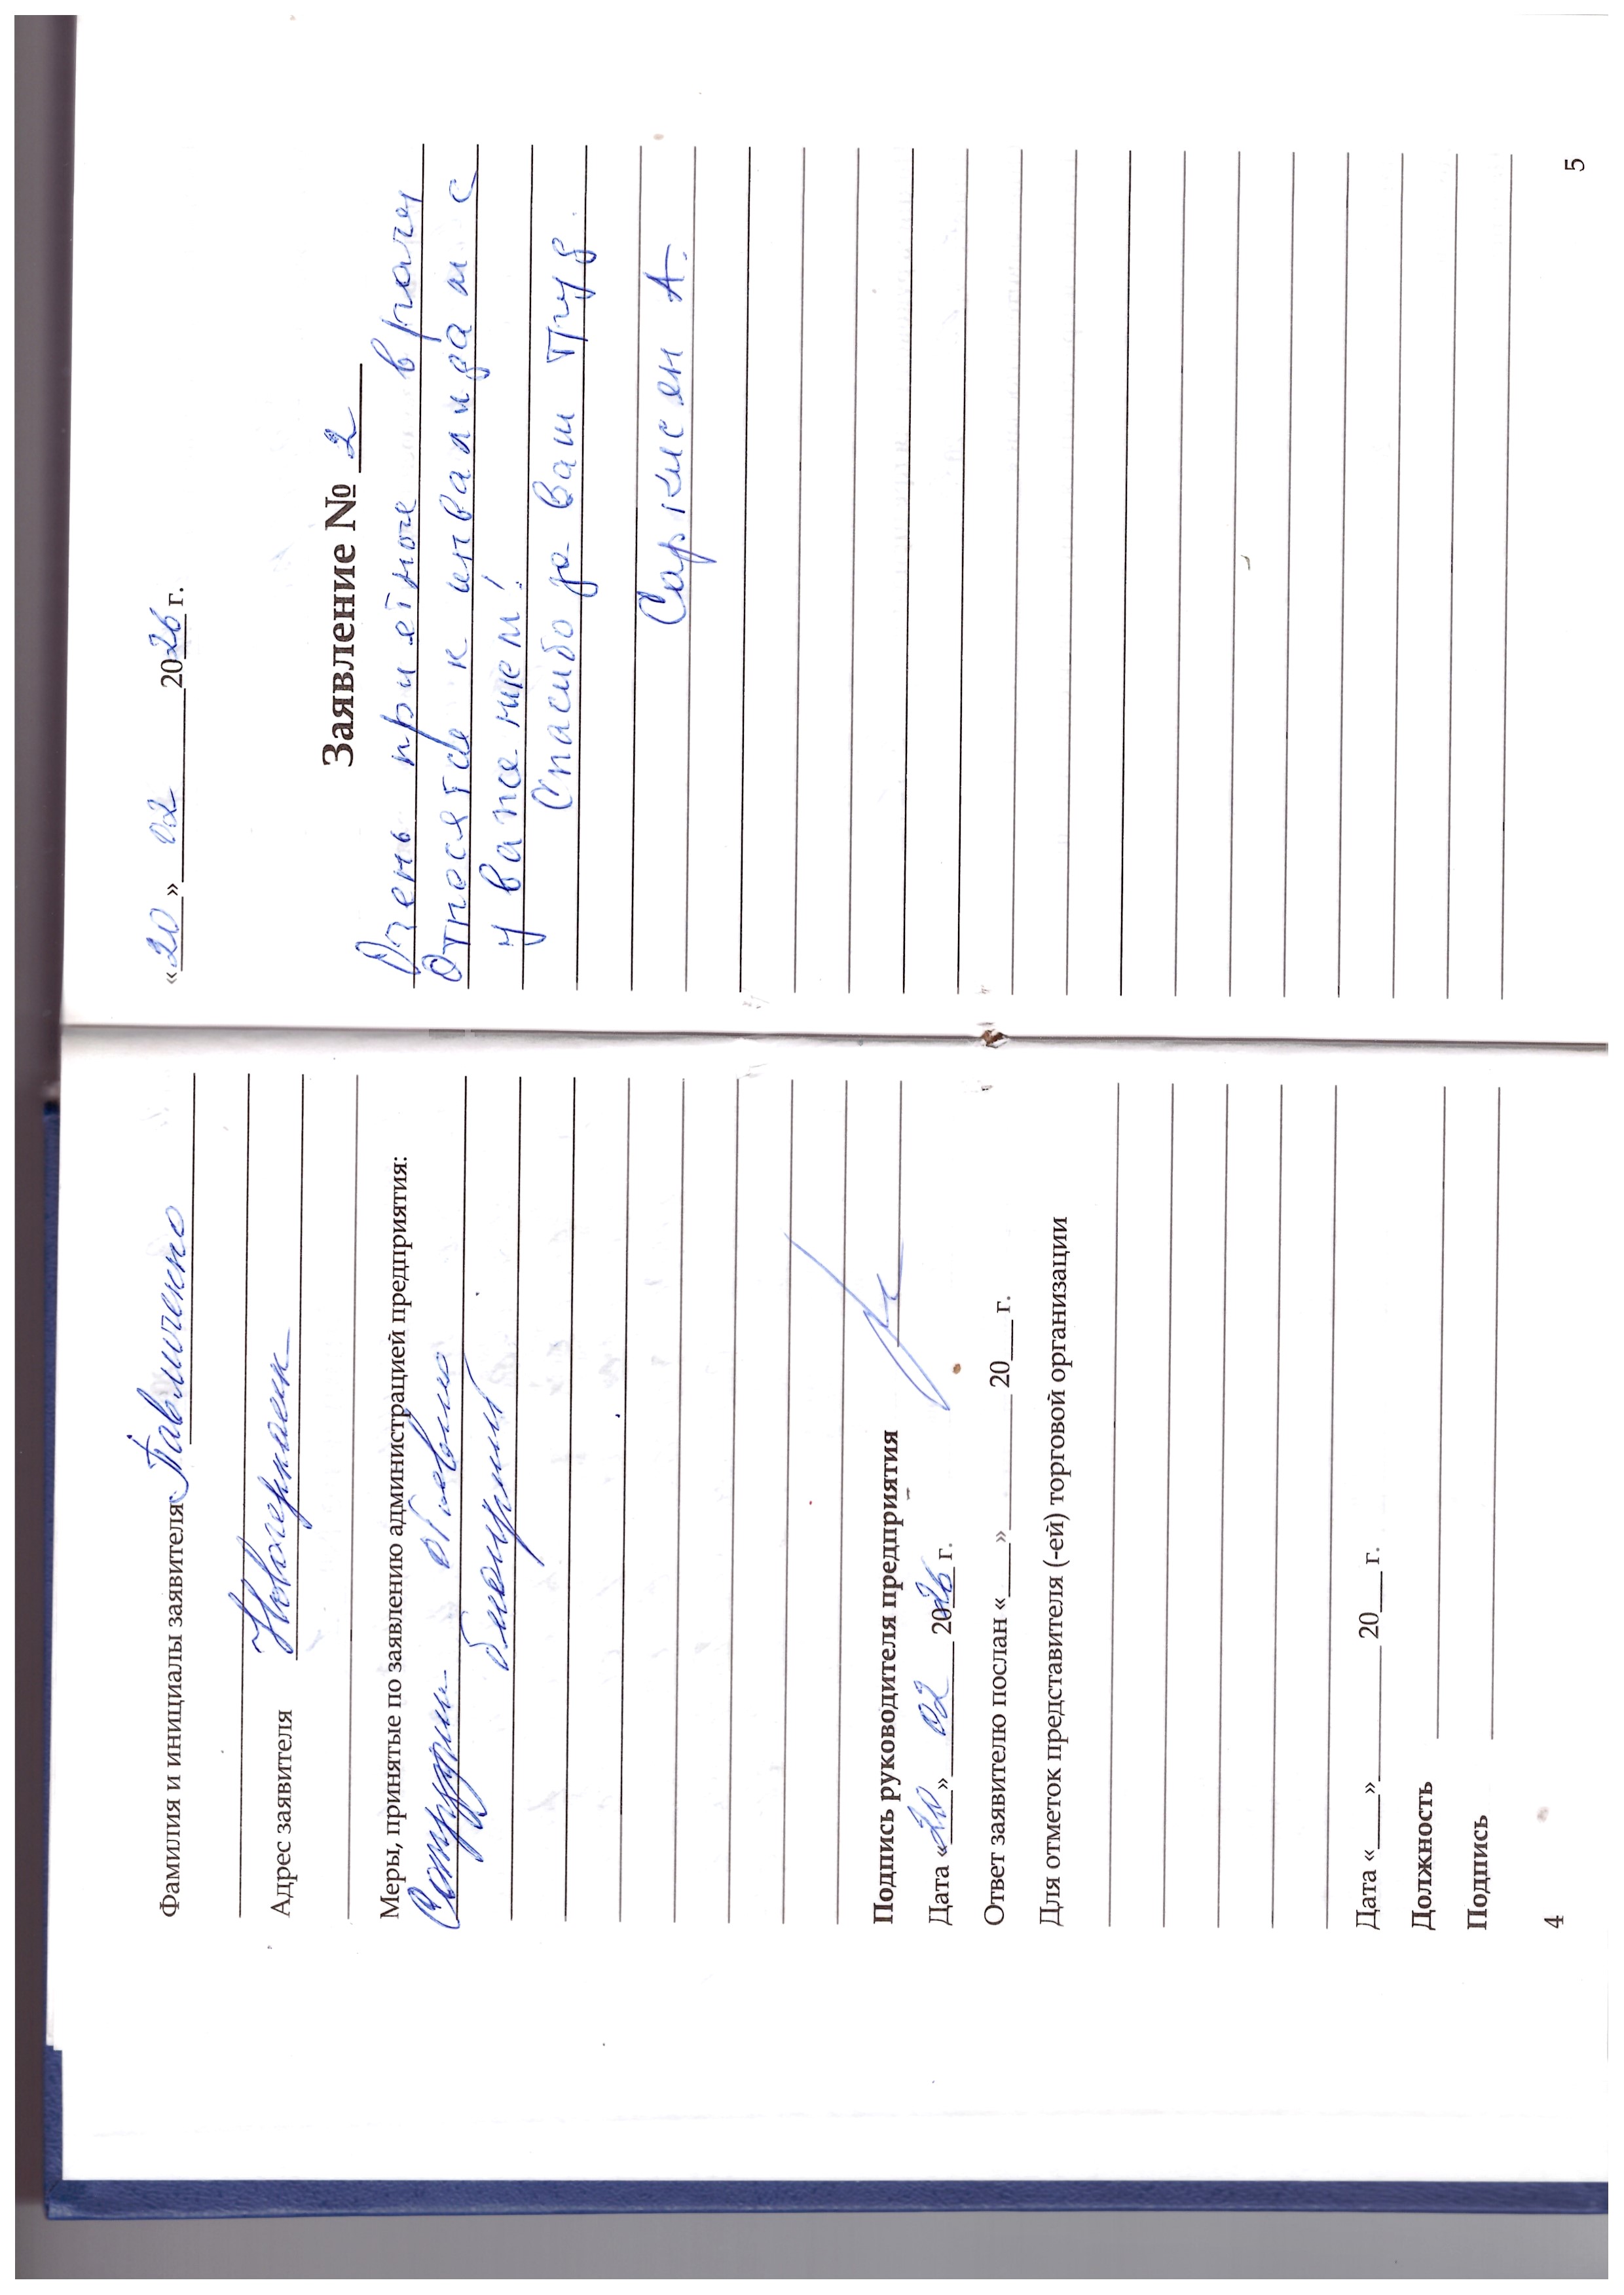 Фамилия и инициалы заявителя Павличенко
Адрес заявителя Новочеркасск
Меры, принятые по заявлению администрацией предприятия:
Сотрудник
Подпись руководителя предприятия
Дата «20» 02 2026 г.
Ответ заявителю послан «___» ________ 20___ г.
Для отметок представителя (-ей) торговой организации
Дата «___» ________ 20___ г.
Должность
Подпись
4
«20» 02 2026 г.
Заявление № 2
Очень приетные врачи
Относятся к инвалидам с
уважением!
Спасибо за ваш труд
Саркисен А.
5